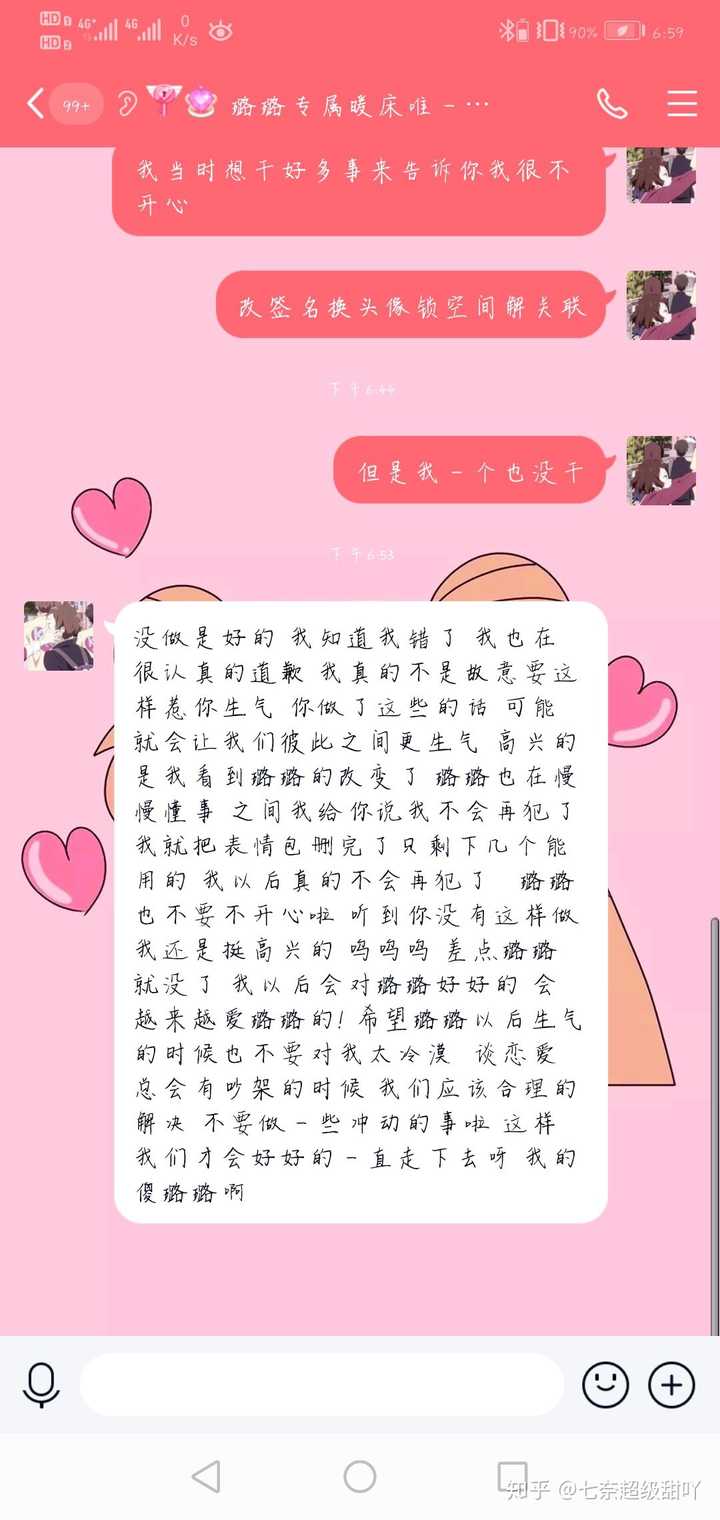 HD 1 4G+ 4G 0 90% 6:59
HD 2 K/s
99+ 璐璐专属暖床唯一…
我当时想干好多事来告诉你我很不
开心
改签名换头像锁空间解关联
下午6:44
但是我一个也没干
下午6:53
没做是好的 我知道我错了 我也在
很认真的道歉 我真的不是故意要这
样惹你生气 你做了这些的话 可能
就会让我们彼此之间更生气 高兴的
是我看到璐璐的改变了 璐璐也在慢
慢懂事 之间我给你说我不会再犯了
我就把表情包删完了只剩下几个能
用的 我以后真的不会再犯了 璐璐
也不要不开心啦 听到你没有这样做
我还是挺高兴的 呜呜呜 差点璐璐
就没了 我以后会对璐璐好好的 会
越来越爱璐璐的! 希望璐璐以后生气
的时候也不要对我太冷漠 谈恋爱
总会有吵架的时候 我们应该合理的
解决 不要做一些冲动的事啦 这样
我们才会好好的一直走下去呀 我的
傻璐璐啊
知乎 @七奈超级甜吖